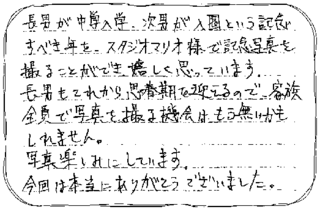 長男が中学入学、次男が入園という記念
すべき年を、スタジオマリオ様で記念写真を
撮ることができ嬉しく思っています。
長男もこれから思春期を迎えるので、家族
全員で写真を撮る機会はもう無いかも
しれません。
写真楽しみにしています。
今回は本当にありがとうございました。